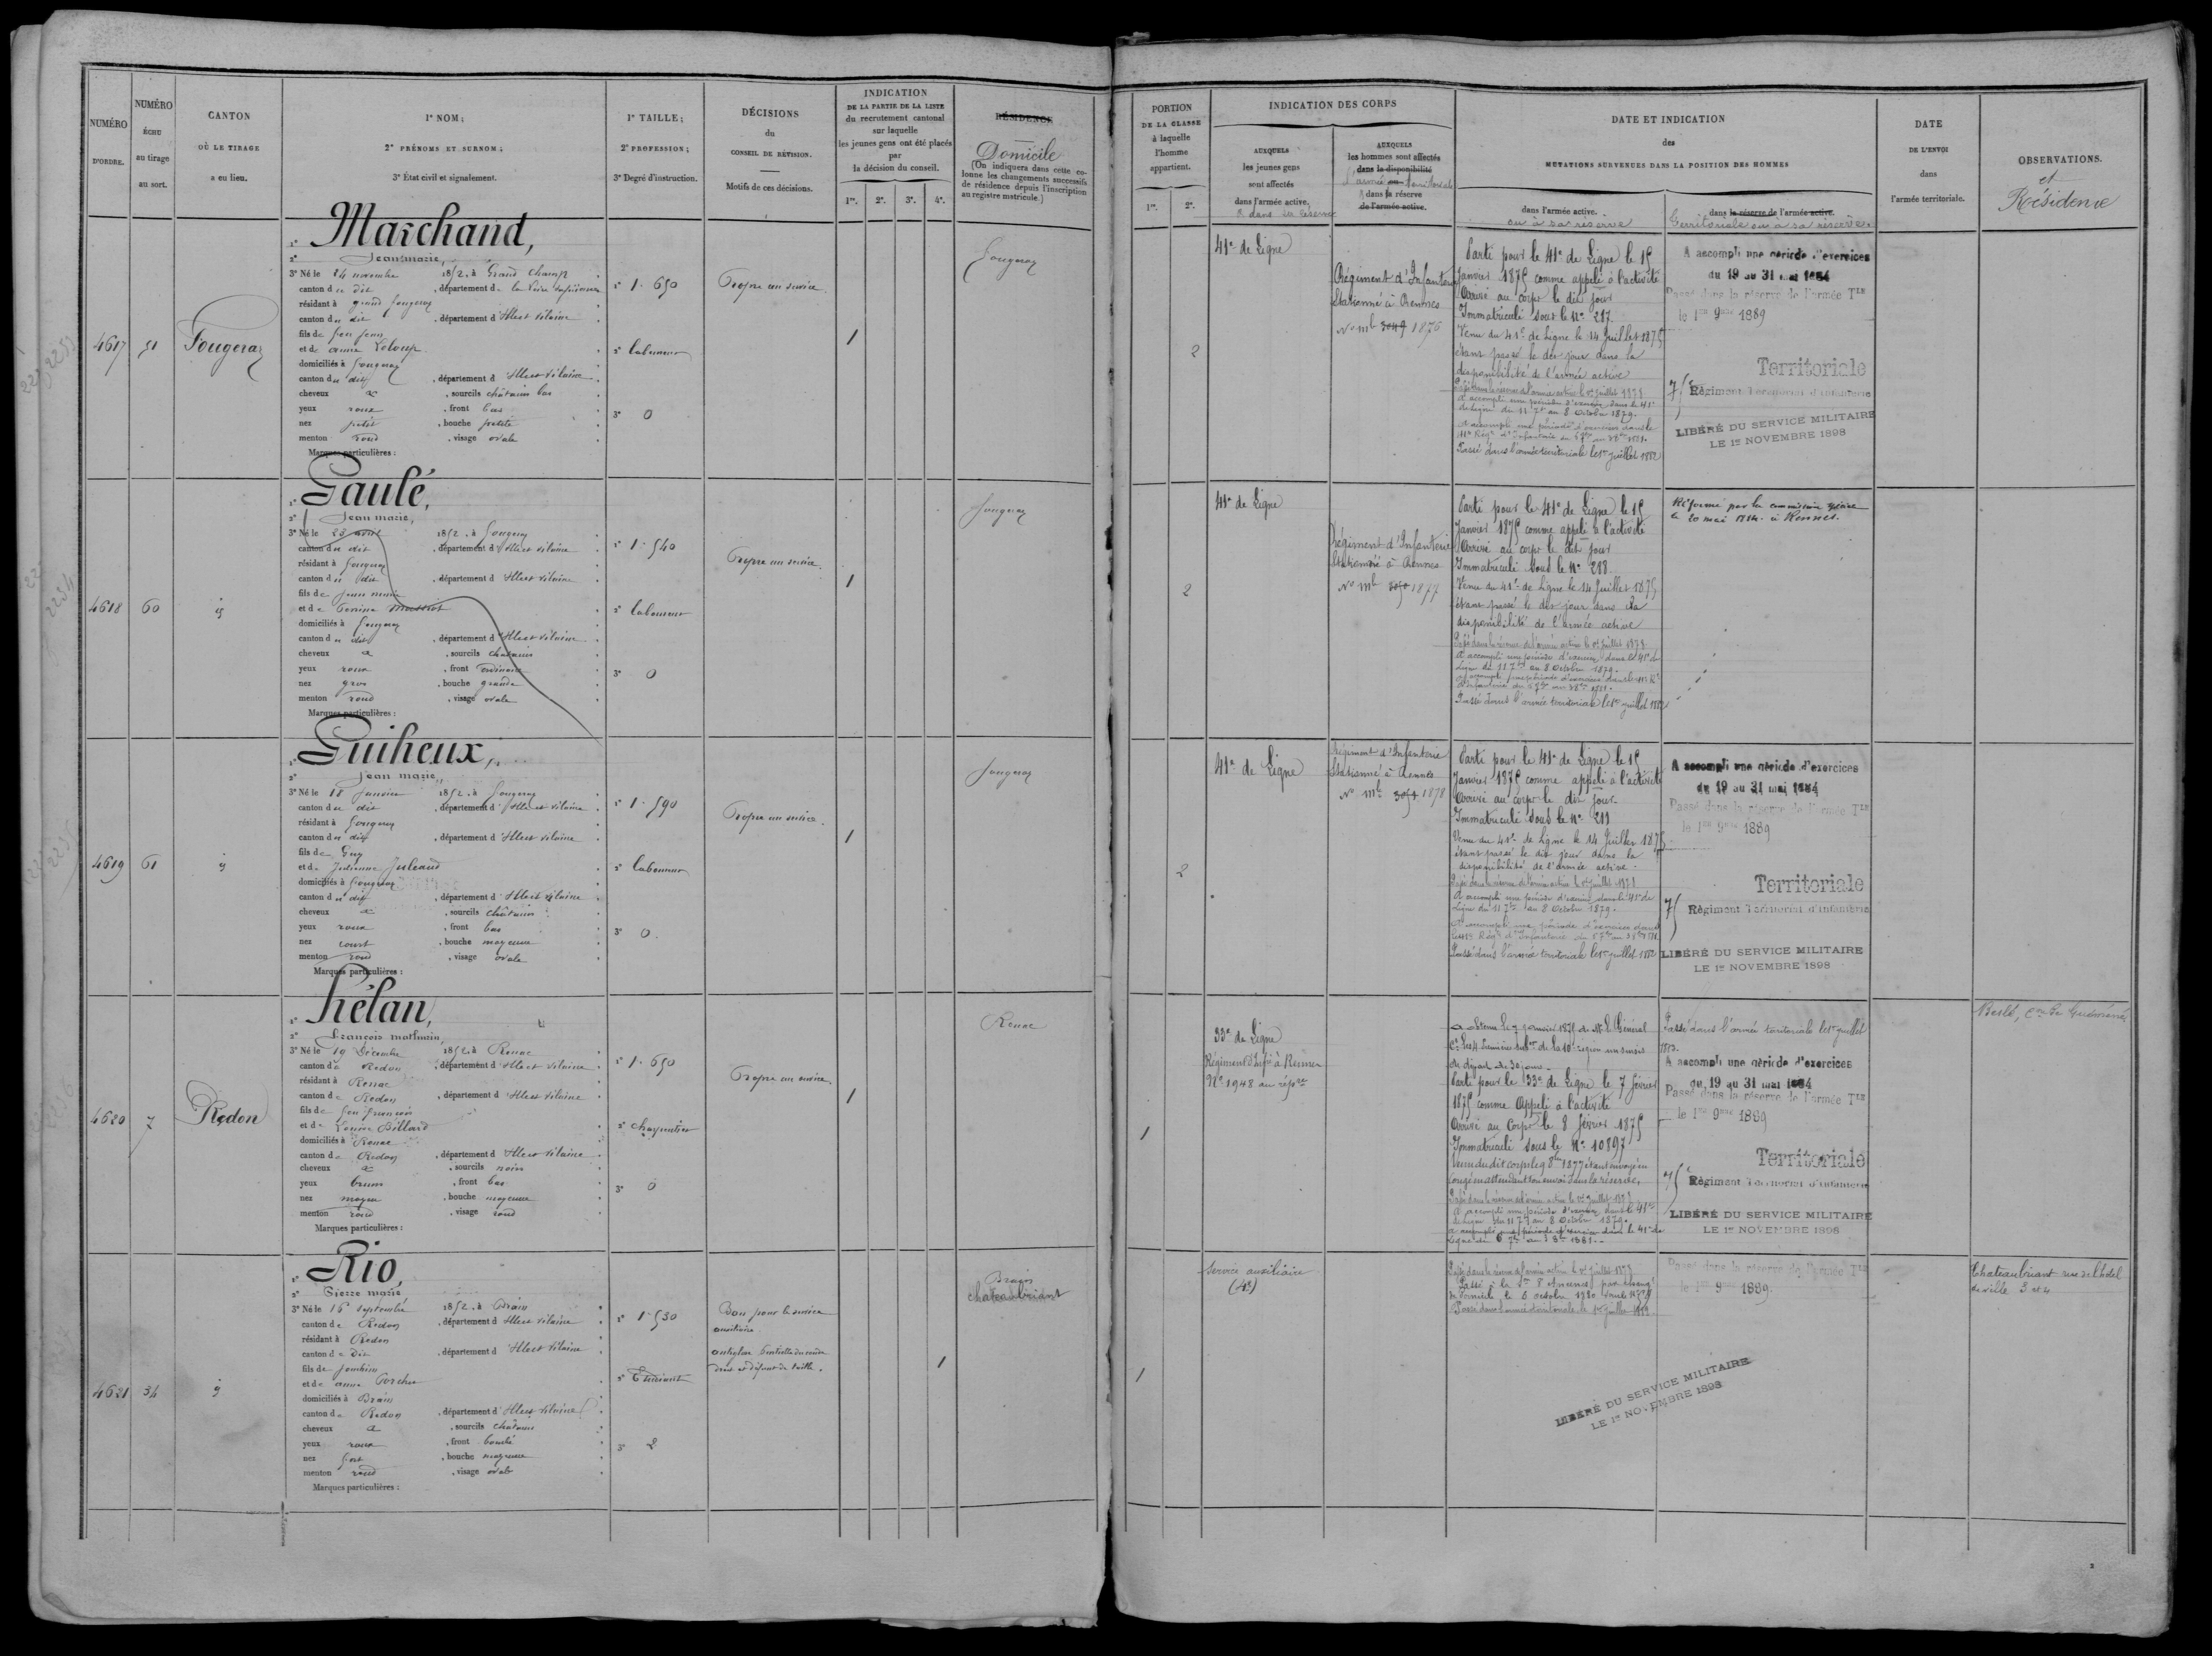 NUMÉRO
D'ORDRE.
NUMÉRO
ÉCHU
au tirage
au sort.
CANTON
OÙ LE TIRAGE
a eu lieu.
1° NOM;
2° PRÉNOMS ET SURNOM;
3° État civil et signalement.
1° TAILLE;
2° PROFESSION;
3° Degré d'instruction.
DÉCISIONS
du
CONSEIL DE RÉVISION.
Motifs de ces décisions.
INDICATION
DE LA PARTIE DE LA LISTE
du recrutement cantonal
sur laquelle
les jeunes gens ont été placés
par
la décision du conseil.
1re. 2e. 3e. 4e.
RÉSIDENCE
Domicile
(On indiquera dans cette co-
lonne les changements successifs
de résidence depuis l'inscription
au registre matricule.)
4617
51
Fougeray
1° Marchand,
2° Jean marie,
3° Né le 24 novembre 1852. à Grand Champ
canton du dit, département de la Loire inférieure
résidant à grand fougeray
canton du dit, département d'Ille et Vilaine
fils de feu jean
et de anne Leloup
domiciliés à fougeray
canton du dit, département d'Ille et Vilaine
cheveux &, sourcils châtains bas
yeux roux, front bas
nez petit, bouche petite
menton rond, visage ovale
Marques particulières :
1° 1. 650
2° laboureur
3° 0
Propre au service.
1
fougeray
4618
60
id
1° Gaulé,
2° Jean marie,
3° Né le 23 avril 1852. à fougeray
canton du dit, département d'Ille et Vilaine
résidant à fougeray
canton du dit, département d'Ille et Vilaine
fils de jean marie
et de Perrine
domiciliés à fougeray
canton du dit, département d'Ille et Vilaine
cheveux &, sourcils châtains
yeux roux, front ordinaire
nez gros, bouche grande
menton rond, visage ovale
Marques particulières :
1° 1. 540
2° laboureur
3° 0
Propre au service
1
fougeray
4619
61
id
1° Guiheux,
2° Jean marie,
3° Né le 18 Janvier 1852. à fougeray
canton du dit, département d'Ille et Vilaine
résidant à fougeray
canton du dit, département d'Ille et Vilaine
fils de Guy
et de Julienne Juleaud
domiciliés à fougeray
canton du dit, département d'Ille et Vilaine
cheveux &, sourcils châtains
yeux roux, front bas
nez court, bouche moyenne
menton rond, visage ovale
Marques particulières :
1° 1. 590
2° laboureur
3° 0.
Propre au service.
1
fougeray
4620
7
Redon
1° Hélan,
2° François mathurin,
3° Né le 19 Décembre 1852. à Renac
canton de Redon, département d'Ille et Vilaine
résidant à Renac
canton de Redon, département d'Ille et Vilaine
fils de feu françois
et de Louise Billard
domiciliés à Renac
canton de Redon, département d'Ille et Vilaine
cheveux &, sourcils noirs
yeux bruns, front bas
nez moyen, bouche moyenne
menton rond, visage rond
Marques particulières :
1° 1. 650
2° charpentier
3° 0
Propre au service.
1
Renac
4621
34
id
1° Rio,
2° Pierre marie
3° Né le 16 septembre 1852. à Brain
canton de Redon, département d'Ille et Vilaine
résidant à Redon
canton de dit, département d'Ille et Vilaine
fils de joachim
et de anne Porcher
domiciliés à Brain
canton de Redon, département d'Ille et Vilaine
cheveux &, sourcils châtains
yeux roux, front bombé
nez fort, bouche moyenne
menton rond, visage ovale
Marques particulières :
1° 1. 530
2° Etudiant
3° 2
Bon pour le service
auxiliaire.
ankylose partielle du coude
droit et défaut de taille.
1
Brain
chateaubriant
PORTION
DE LA CLASSE
à laquelle
l'homme
appartient.
1re. 2e.
INDICATION DES CORPS
AUXQUELS
les jeunes gens
sont affectés
dans l'armée active,
& dans sa réserve
AUXQUELS
les hommes sont affectés
dans la disponibilité
l'armée ou territoriale
& dans sa réserve
de l'armée active.
DATE ET INDICATION
des
MUTATIONS SURVENUES DANS LA POSITION DES HOMMES
dans l'armée active.
ou à sa réserve
dans la réserve de l'armée active.
Territoriale ou à sa réserve.
DATE
DE L'ENVOI
dans
l'armée territoriale.
OBSERVATIONS.
et
Résidence
2
41e de Ligne
Régiment d'Infanterie
Stationné à Rennes
No ml 3049 1876
Parti pour le 41e de Ligne le 15
Janvier 1875 comme appelé à l'activité
Arrivé au corps le dit jour
Immatriculé sous le No 217
Venu du 41e de Ligne le 14 Juillet 1875
étant passé le dit jour dans la
disponibilité de l'armée active
Passé dans la réserve de l'armée active le 1er Juillet 1878
A accompli une période d'exercices dans le 41e
de Ligne du 11 7bre au 8 Octobre 1879.
Passé dans l'armée territoriale le 1er juillet 1882
A accompli une période d'exercices
du 19 au 31 mai 1884
Passé dans la réserve de l'armée Tle
le 1er 9bre 1889
Territoriale
75e Régiment Territorial d'Infanterie
LIBÉRÉ DU SERVICE MILITAIRE
LE 1er NOVEMBRE 1898
2
41e de Ligne
Régiment d'Infanterie
Stationné à Rennes
No ml 3050 1877
Parti pour le 41e de Ligne le 15
Janvier 1875 comme appelé à l'activité
Arrivé au corps le dit jour
Immatriculé sous le No 218
Venu du 41e de Ligne le 14 Juillet 1875
étant passé le dit jour dans la
disponibilité de l'armée active
Passé dans la réserve de l'armée active le 1er Juillet 1878
A accompli une période d'exercices dans le 41e de
Ligne du 11 7bre au 8 Octobre 1879.
Passé dans l'armée territoriale le 1er juillet 1882
Réformé par la commission spéciale
le 20 mai 1884. à Rennes.
2
41e de Ligne
Régiment d'Infanterie
Stationné à Rennes
No ml 3051 1878
Parti pour le 41e de Ligne le 15
Janvier 1875 comme appelé à l'activité
Arrivé au corps le dit jour
Immatriculé sous le No 211
Venu du 41e de Ligne le 14 Juillet 1875
étant passé le dit jour dans la
disponibilité de l'armée active.
Passé dans la réserve de l'armée active le 1er Juillet 1878
A accompli une période d'exercices dans le 41e de
Ligne du 11 7bre au 8 Octobre 1879.
Passé dans l'armée territoriale le 1er juillet 1882
A accompli une période d'exercices
du 19 au 31 mai 1884
Passé dans la réserve de l'armée Tle
le 1er 9bre 1889
Territoriale
75e Régiment Territorial d'Infanterie
LIBÉRÉ DU SERVICE MILITAIRE
LE 1er NOVEMBRE 1898
1
33e de Ligne
Régiment d'Infie à Rennes
No 1948 au répre
A obtenu le 7 janvier 1875 de Mr le Général
de départ de 30 jours.
Parti pour le 33e de Ligne le 7 février
1875 comme Appelé à l'activité
Arrivé au Corps le 8 février 1875
Immatriculé sous le No 10897
Venu du dit corps le 9 8bre 1877 étant envoyé en
congé en attendant son envoi dans la réserve,
Passé dans la réserve de l'armée active le 1er Juillet 1878
A accompli une période d'exercices dans le 41e
de Ligne du 11 7bre au 8 Octobre 1879.
A accompli une période d'exercices dans le 41e de
Ligne du 6 7bre au 3 8bre 1881.
Passé dans l'armée territoriale le 1er juillet
1883.
A accompli une période d'exercices
du 19 au 31 mai 1884
Passé dans la réserve de l'armée Tle
le 1er 9bre 1889
Territoriale
75e Régiment Territorial d'Infanterie
LIBÉRÉ DU SERVICE MILITAIRE
LE 1er NOVEMBRE 1898
Beslé, Cne de Guémené
1
Service auxiliaire
(4e)
Passé dans la réserve de l'armée active le 1er Juillet 1878
Passé à la Son d'Ancenis par changt
de domicile le 6 octobre 1880
Passé dans l'armée territoriale le 1er juillet 1882
Passé dans la réserve de l'armée Tle
le 1er 9bre 1889
LIBÉRÉ DU SERVICE MILITAIRE
LE 1er NOVEMBRE 1898
Chateaubriant rue de l'hotel
de ville 3 et 4